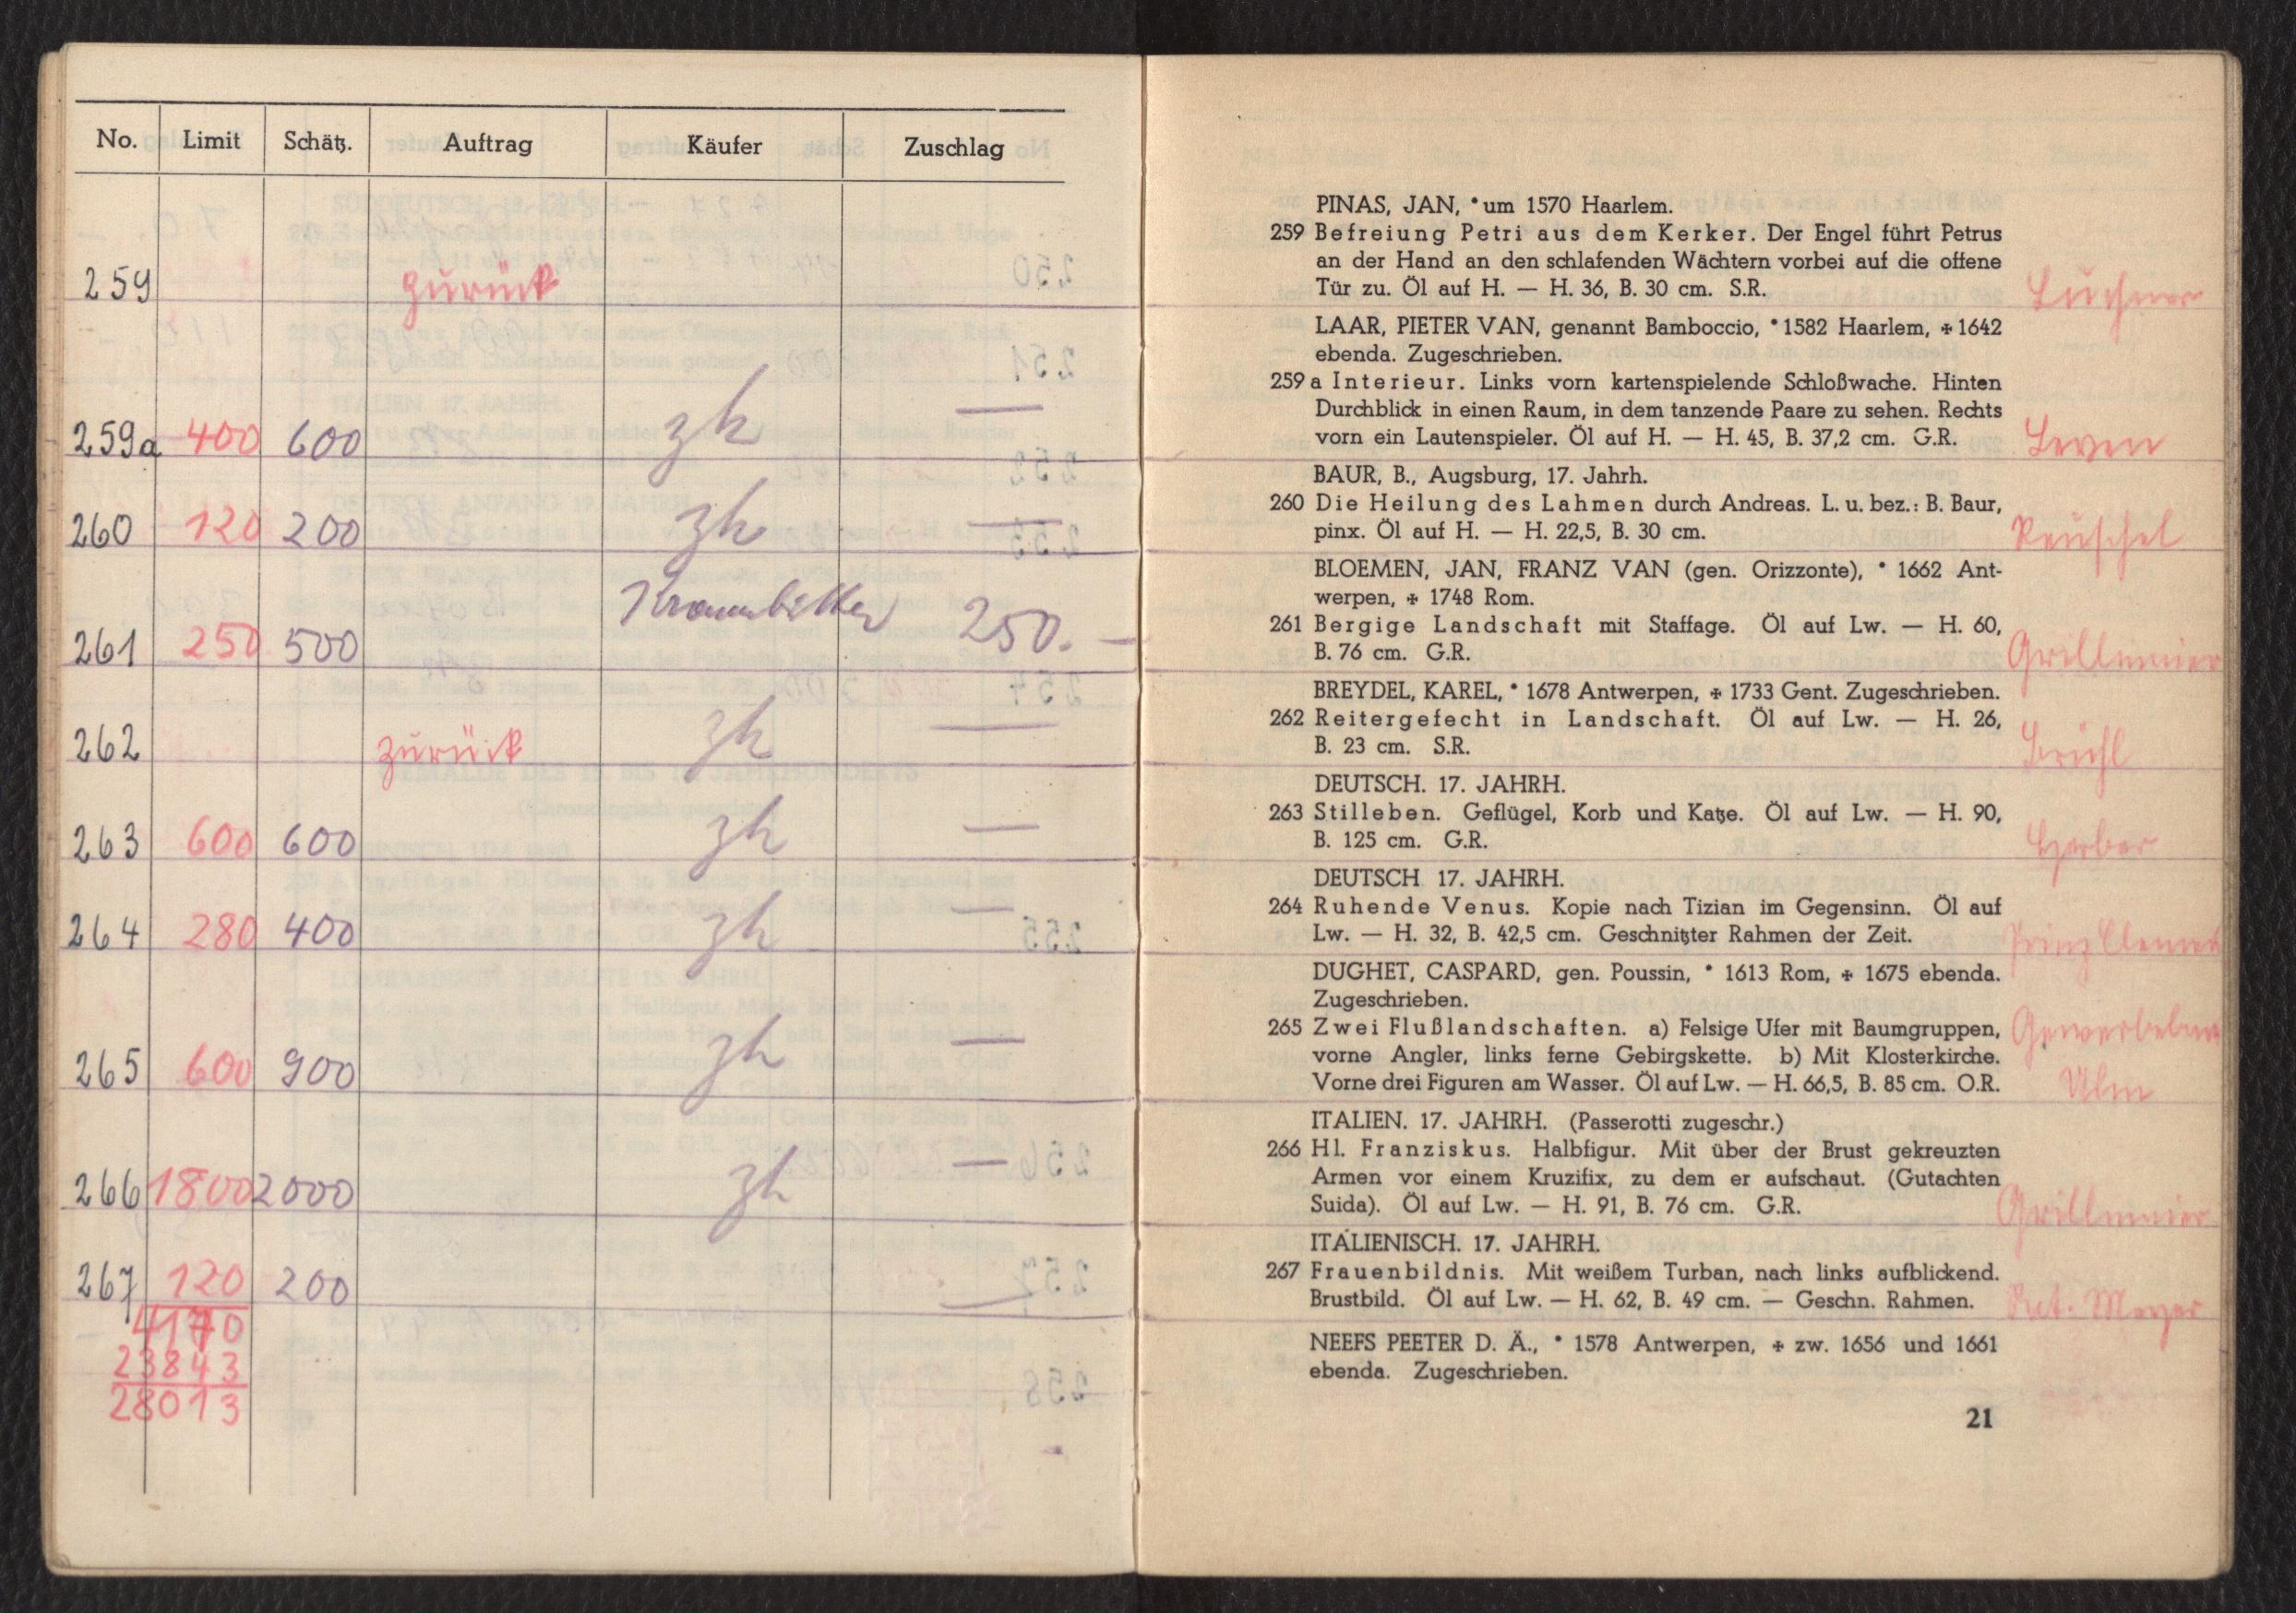 No. Limit Schätz. Auftrag Käufer Zuschlag
259 zurück
259a 400 600 zh —
260 120 200 zh —
261 250 500 250.—
262 zurück zh —
263 600 600 zh —
264 280 400 zh —
265 600 900 zh —
266 1800 2000 zh —
267 120 200 —
4170
23843
28013
PINAS, JAN, * um 1570 Haarlem.
259 Befreiung Petri aus dem Kerker. Der Engel führt Petrus
an der Hand an den schlafenden Wächtern vorbei auf die offene
Tür zu. Öl auf H. — H. 36, B. 30 cm. S.R.
LAAR, PIETER VAN, genannt Bamboccio, * 1582 Haarlem, ✠ 1642
ebenda. Zugeschrieben.
259 a Interieur. Links vorn kartenspielende Schloßwache. Hinten
Durchblick in einen Raum, in dem tanzende Paare zu sehen. Rechts
vorn ein Lautenspieler. Öl auf H. — H. 45, B. 37,2 cm. G.R.
Leven
BAUR, B., Augsburg, 17. Jahrh.
260 Die Heilung des Lahmen durch Andreas. L. u. bez.: B. Baur,
pinx. Öl auf H. — H. 22,5, B. 30 cm.
Reuschel
BLOEMEN, JAN, FRANZ VAN (gen. Orizzonte), * 1662 Ant-
werpen, ✠ 1748 Rom.
261 Bergige Landschaft mit Staffage. Öl auf Lw. — H. 60,
B. 76 cm. G.R.
Grillmeier
BREYDEL, KAREL, * 1678 Antwerpen, ✠ 1733 Gent. Zugeschrieben.
262 Reitergefecht in Landschaft. Öl auf Lw. — H. 26,
B. 23 cm. S.R.
DEUTSCH. 17. JAHRH.
263 Stilleben. Geflügel, Korb und Katze. Öl auf Lw. — H. 90,
B. 125 cm. G.R.
DEUTSCH 17. JAHRH.
264 Ruhende Venus. Kopie nach Tizian im Gegensinn. Öl auf
Lw. — H. 32, B. 42,5 cm. Geschnitzter Rahmen der Zeit.
Prinz Clemens
DUGHET, CASPARD, gen. Poussin, * 1613 Rom, ✠ 1675 ebenda.
Zugeschrieben.
265 Zwei Flußlandschaften. a) Felsige Ufer mit Baumgruppen,
vorne Angler, links ferne Gebirgskette. b) Mit Klosterkirche.
Vorne drei Figuren am Wasser. Öl auf Lw. — H. 66,5, B. 85 cm. O.R.
Ulm
ITALIEN. 17. JAHRH. (Passerotti zugeschr.)
266 Hl. Franziskus. Halbfigur. Mit über der Brust gekreuzten
Armen vor einem Kruzifix, zu dem er aufschaut. (Gutachten
Suida). Öl auf Lw. — H. 91, B. 76 cm. G.R.
Grillmeier
ITALIENISCH. 17. JAHRH.
267 Frauenbildnis. Mit weißem Turban, nach links aufblickend.
Brustbild. Öl auf Lw. — H. 62, B. 49 cm. — Geschn. Rahmen.
Meyer
NEEFS PEETER D. Ä., * 1578 Antwerpen, ✠ zw. 1656 und 1661
ebenda. Zugeschrieben.
21